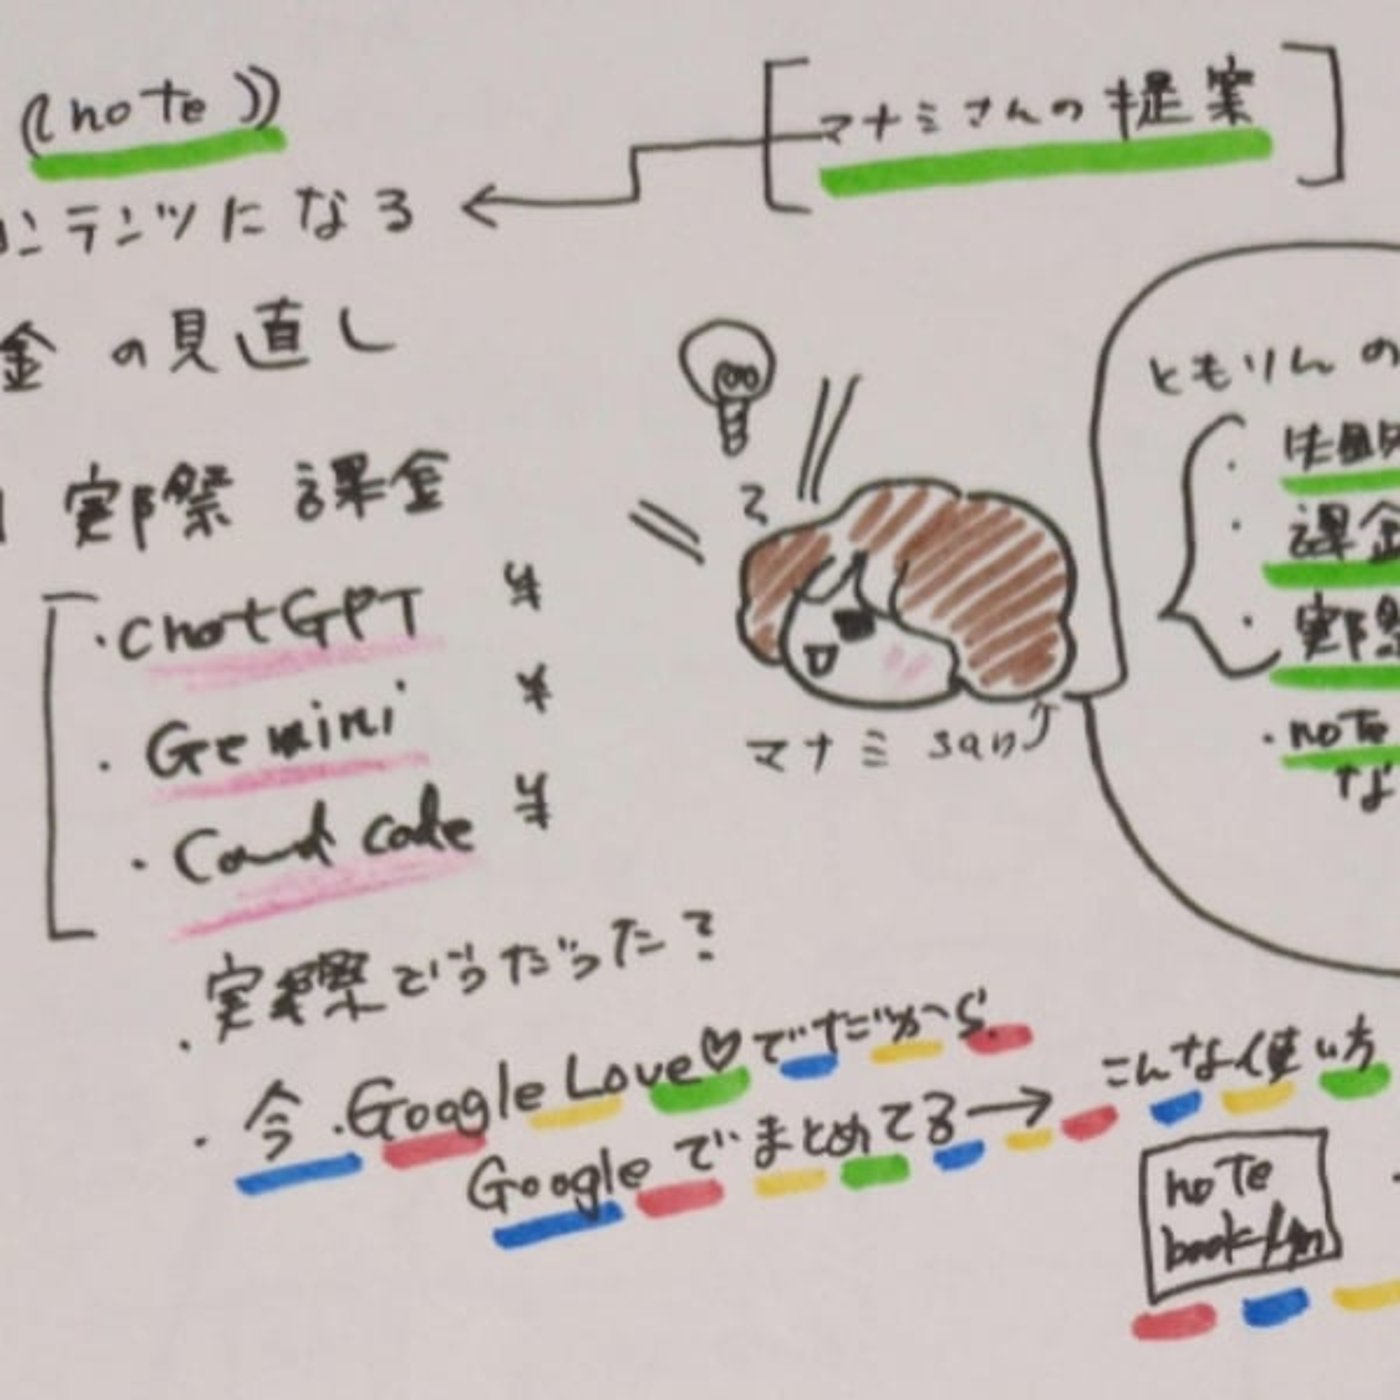 ((note))
コンテンツになる
金の見直し
実際 課金
・chatGPT ¥
・Gemini ¥
・Caud code ¥
・実際どうだった?
・今.Google Love♡でだから
Googleでまとめてる→
[マナミさんの提案]
マナミsan
ともりんの
・課金
・実際
・note
な
こんな使い方
note
book/lm